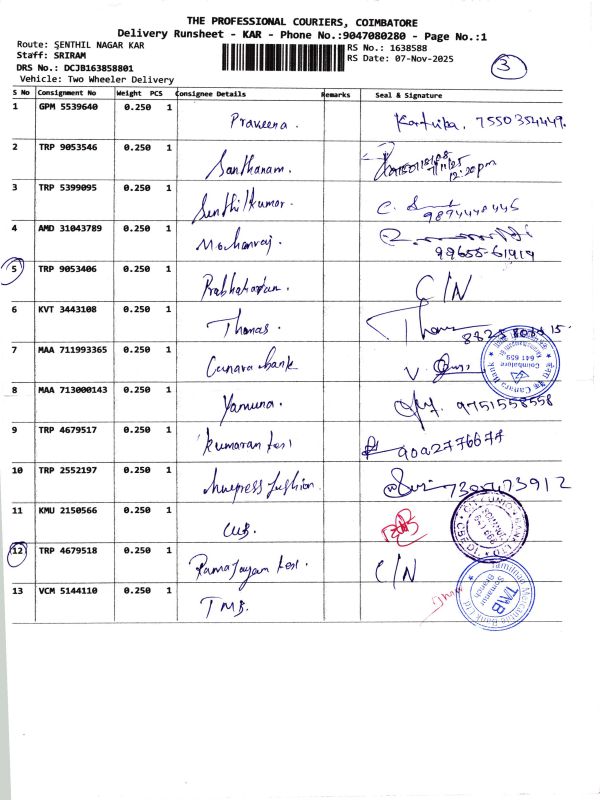 THE PROFESSIONAL COURIERS, COIMBATORE
Delivery Runsheet - KAR - Phone No.:9047080280 - Page No.:1
Route: SENTHIL NAGAR KAR
RS No.: 1638588
Staff: SRIRAM
RS Date: 07-Nov-2025
3
DRS No.: DCJB163858801
Vehicle: Two Wheeler Delivery
S No Consignment No Weight PCS Consignee Details Remarks Seal & Signature
1 GPM 5539640 0.250 1 Praveena. Karthika. 7550354449.
2 TRP 9053546 0.250 1 Santhanam. 7/11/25 12:20pm
3 TRP 5399095 0.250 1 Senthilkumar. C.
4 AMD 31043789 0.250 1 Mohanraj. 99655-61919
5 TRP 9053406 0.250 1 Prabhakaran. C/N
6 KVT 3443108 0.250 1 Thomas. Thomas
7 MAA 711993365 0.250 1 Canara Bank V.
Canara Bank
Coimbatore
641 659
8 MAA 713000143 0.250 1 Yamuna. 9751558558
9 TRP 4679517 0.250 1 Kumaran tex1
10 TRP 2552197 0.250 1
11 KMU 2150566 0.250 1 CUB.
12 TRP 4679518 0.250 1 Ramajayam tex1. C/N
13 VCM 5144110 0.250 1 TMB.
Tamilnad Mercantile Bank Ltd
TMB
Somanur
Branch